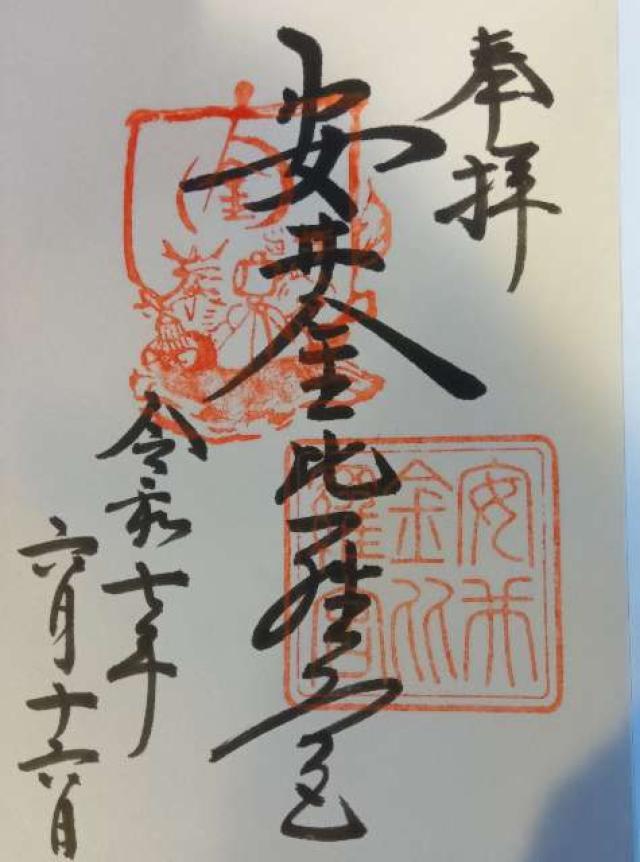 奉拝
安井金比羅宮
安井
金比
羅宮
令和七年
六月十六日